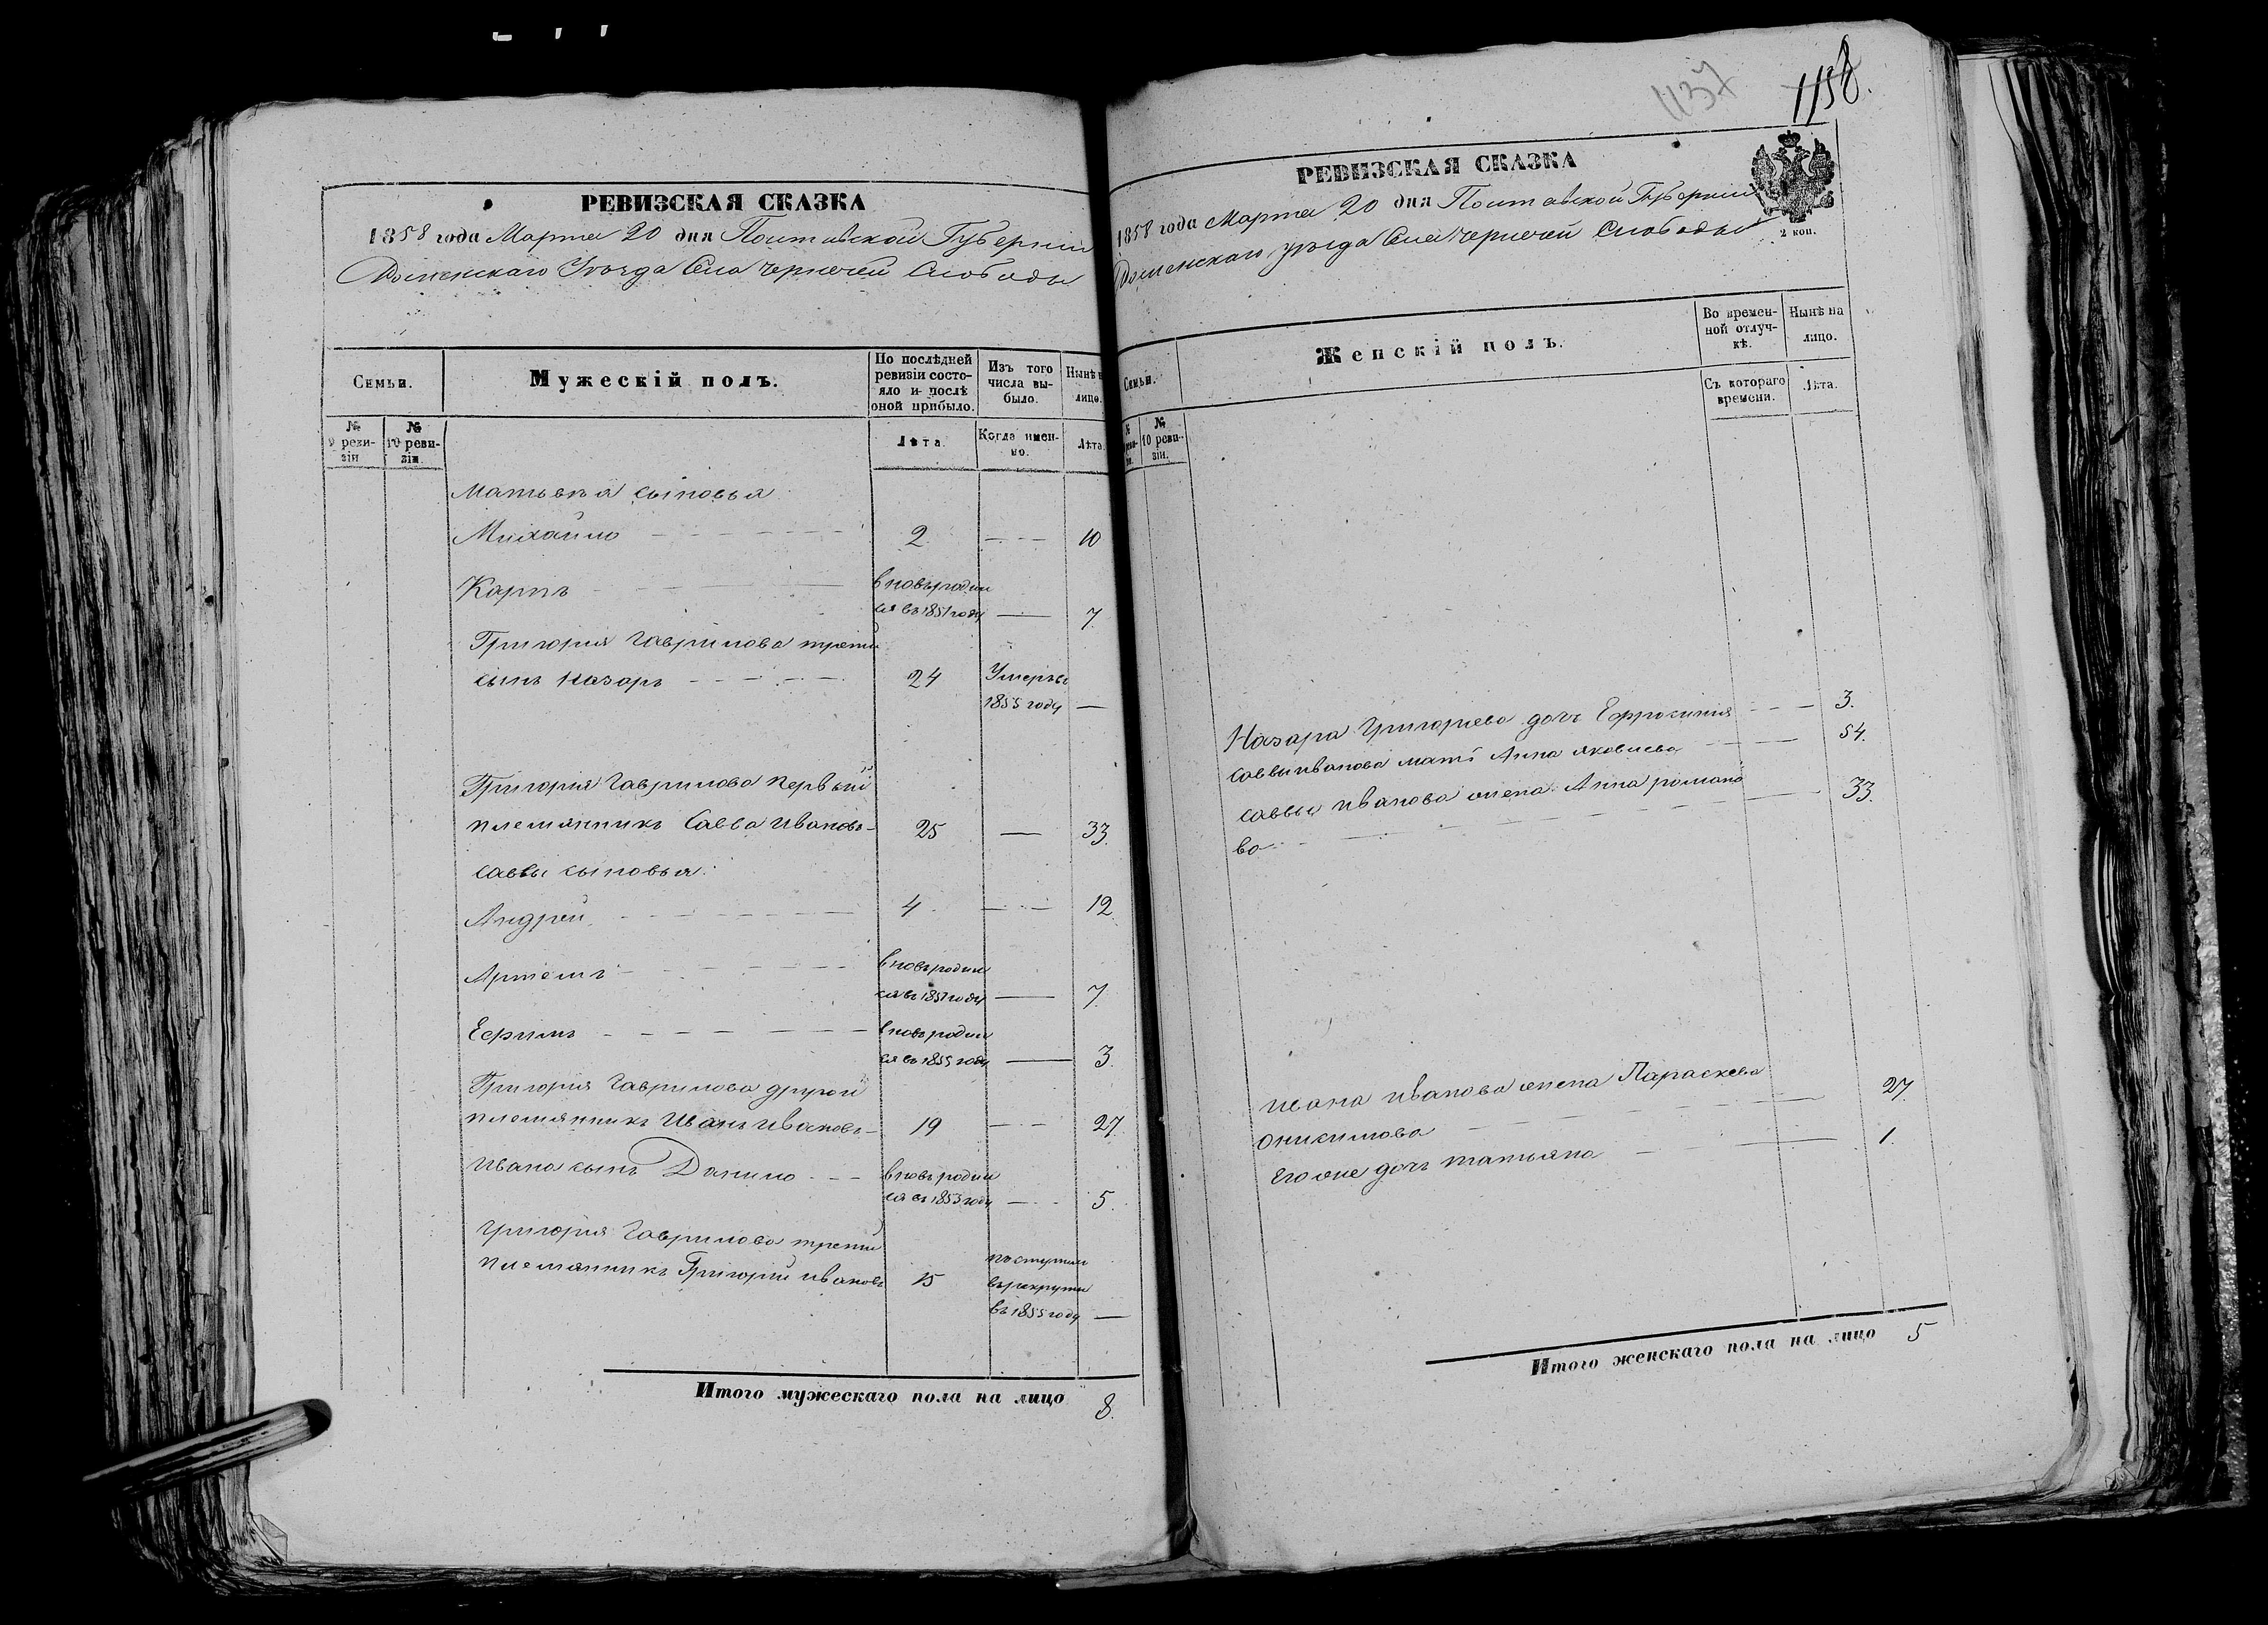 РЕВИЗСКАЯ СКАЗКА
1858 года Марта 20 дня Полтавской Губерніи
Роменскаго Уѣзда Села Чернечей Слободы
Семьи.
Мужескій полъ.
По послѣдней ревизіи состояло и послѣ оной прибыло.
Изъ того числа выбыло.
Нынѣ на лицо.
№ 9 ревизіи
№ 10 ревизіи.
Лѣта.
Когда именно.
Лѣта.
Матвея сыновья
Михайло 2 10
Карпъ вновь родил
ся въ 1851 году 7
Григорія Гаврилова третій
сынъ Назаръ 24 Умеръ въ
1855 году
Григорія Гаврилова первый
племянникъ Савва Ивановъ 25 33.
Саввы сыновья:
Андрей 4 12
Артемъ вновь родил
ся въ 1851 году 7.
Ефимъ вновь родил
ся въ 1855 году 3.
Григорія Гаврилова другой
племянникъ Иванъ Ивановъ 19 27
Ивана сынъ Данило вновь родил
ся въ 1853 году 5.
Григорія Гаврилова третій
племянникъ Григорій Ивановъ 15 поступил
въ рекруты
въ 1855 году
Итого мужескаго пола на лицо 8.
1137
1138.
РЕВИЗСКАЯ СКАЗКА
1858 года Марта 20 дня Полтавской Губерніи
Роменскаго уѣзда Села Чернечей Слободы
2 коп.
Семьи.
Женскій полъ.
Во временной отлучкѣ.
Нынѣ на лицо.
№ 10 ревизіи.
Съ котораго времени.
Лѣта.
Назара Григорьева дочь Ефросинія 3.
Саввы Иванова мать Анна Яковлева 54.
Саввы Иванова жена Анна Романо
ва 33.
Ивана Иванова жена Параскева
Онисимова 27
Его же дочь Татьяна 1.
Итого женскаго пола на лицо 5